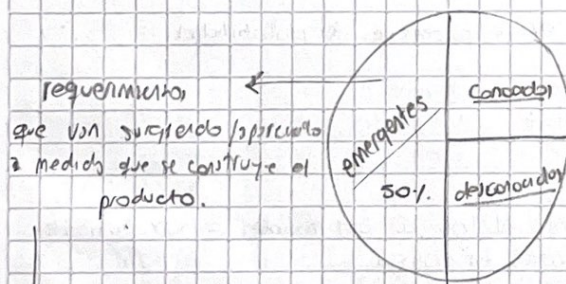 requerimientos
que van surgiendo/apareciendo
a medida que se construye el
producto.
emergentes
50%.
Conocidos
desconocidos